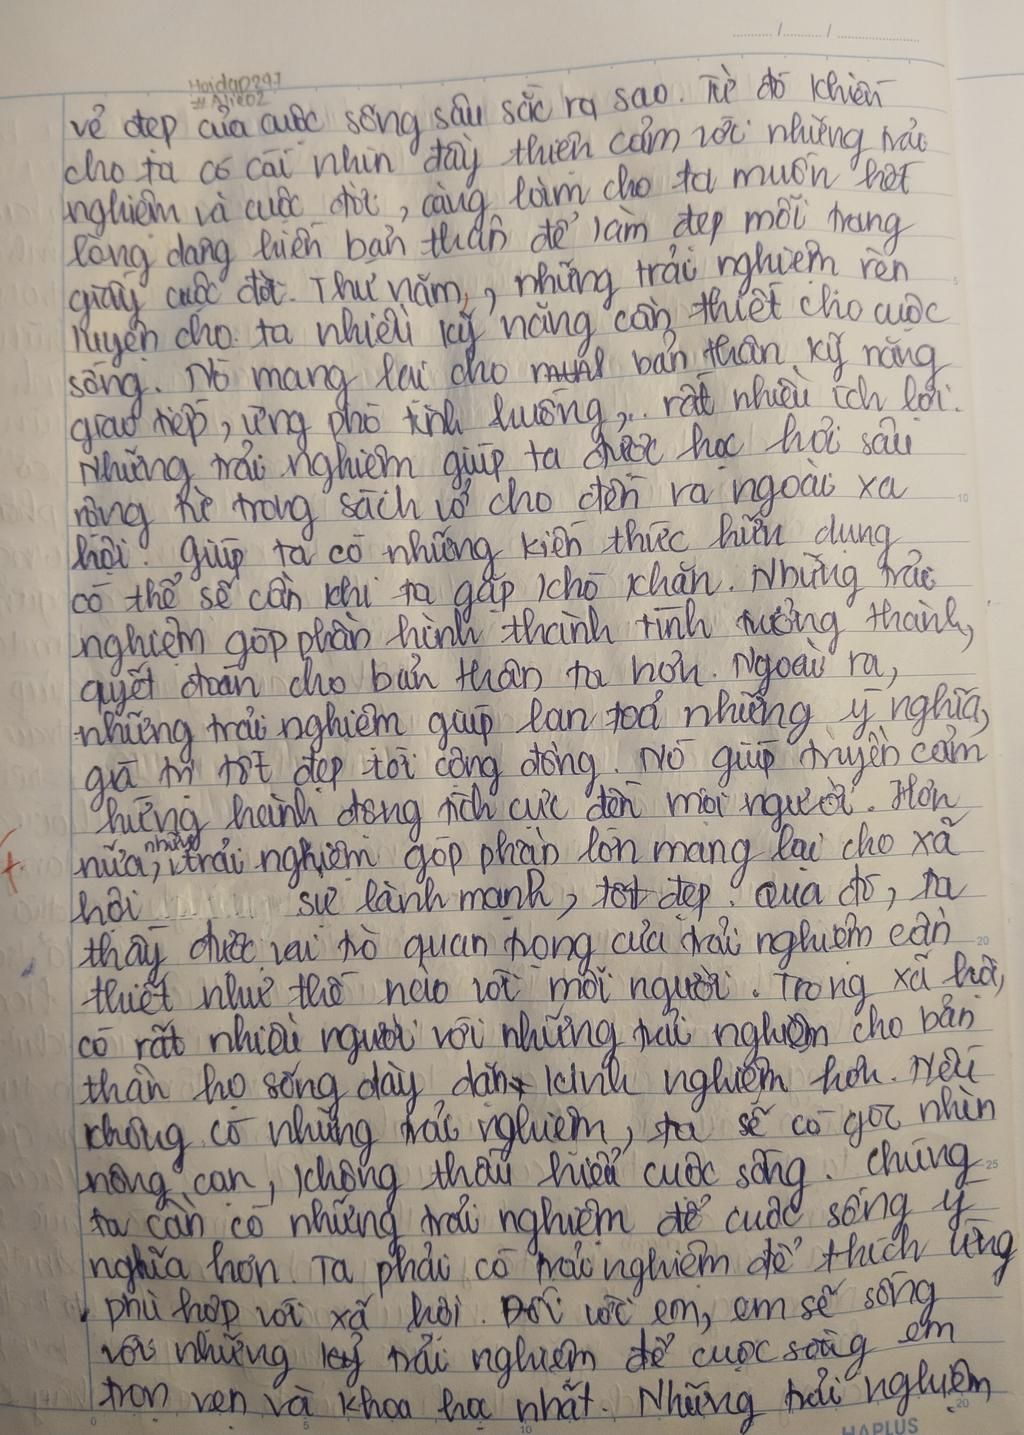 Hoidap247
#Alie02
vẻ đẹp của cuộc sống sâu sắc ra sao. Từ đó khiến
cho ta có cái nhìn đầy thiện cảm với những trải
nghiệm và cuộc đời, càng làm cho ta muốn hết
lòng dâng hiến bản thân để làm đẹp mỗi trang
giấy cuộc đời. Thứ năm, những trải nghiệm rèn
luyện cho ta nhiều kỹ năng cần thiết cho cuộc
sống. Nó mang lại cho bản thân kỹ năng
giao tiếp, ứng phó tình huống,.. rất nhiều ích lợi.
Những trải nghiệm giúp ta được học hỏi sâu
rộng từ trong sách vở cho đến ra ngoài xã
hội. Giúp ta có những kiến thức hữu dụng
có thể sẽ cần khi ta gặp khó khăn. Những trải
nghiệm góp phần hình thành tính trưởng thành,
quyết đoán cho bản thân ta hơn. Ngoài ra,
những trải nghiệm giúp lan toả những ý nghĩa,
giá trị tốt đẹp tới cộng đồng. Nó giúp truyền cảm
hứng hành động tích cực đến mọi người. Hơn
nữa, những trải nghiệm góp phần lớn mang lại cho xã
hội sự lành mạnh, tốt đẹp. Qua đó, ta
thấy được vai trò quan trọng của trải nghiệm cần
thiết như thế nào với mỗi người. Trong xã hội,
có rất nhiều người với những trải nghiệm cho bản
thân họ sống dày dặn kinh nghiệm hơn. Nếu
không có những trải nghiệm, ta sẽ có góc nhìn
nông cạn, không thấu hiểu cuộc sống. Chúng
ta cần có những trải nghiệm để cuộc sống ý
nghĩa hơn. Ta phải có trải nghiệm để thích ứng
phù hợp với xã hội. Đối với em, em sẽ sống
với những trải nghiệm để cuộc sống em
trọn vẹn và khoa học nhất. Những trải nghiệm
HAPLUS